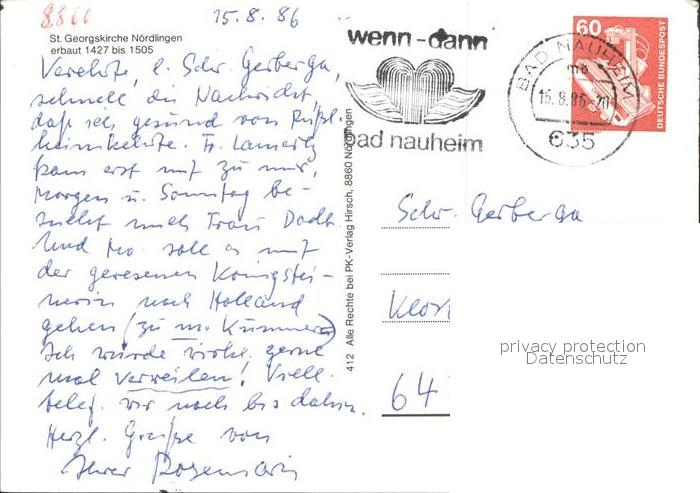 8860
15. 8. 86
St. Georgskirche Nördlingen
erbaut 1427 bis 1505
Verehrte, l. Schr. Gerberga,
schnell die Nachricht,
daß ich gesund von
heimkehrte. Fr.
kam erst mit zu mir,
Morgen u. Sonntag be-
sucht mich Frau
Und Mo. soll es mit
der genesenen Königstei-
nerin nach Holland
gehen (zu m. Kummer)
Ich würde wirkl. gerne
mal verweilen! Viell.
telef. wir noch bis dahin.
Herzl. Grüße von
Ihrer Rosemarie
412 Alle Rechte bei PK-Verlag Hirsch, 8860 Nördlingen
wenn-dann
bad nauheim
60
DEUTSCHE BUNDESPOST
BAD NAUHEIM
mb
15.8.86
635
Schr. Gerberga
64
privacy protection
Datenschutz